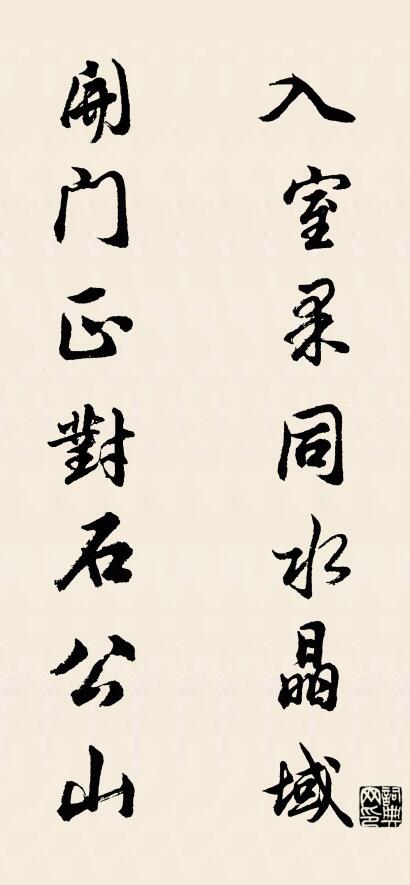 入室果同水晶域
開门正對石公山
詞典
网印